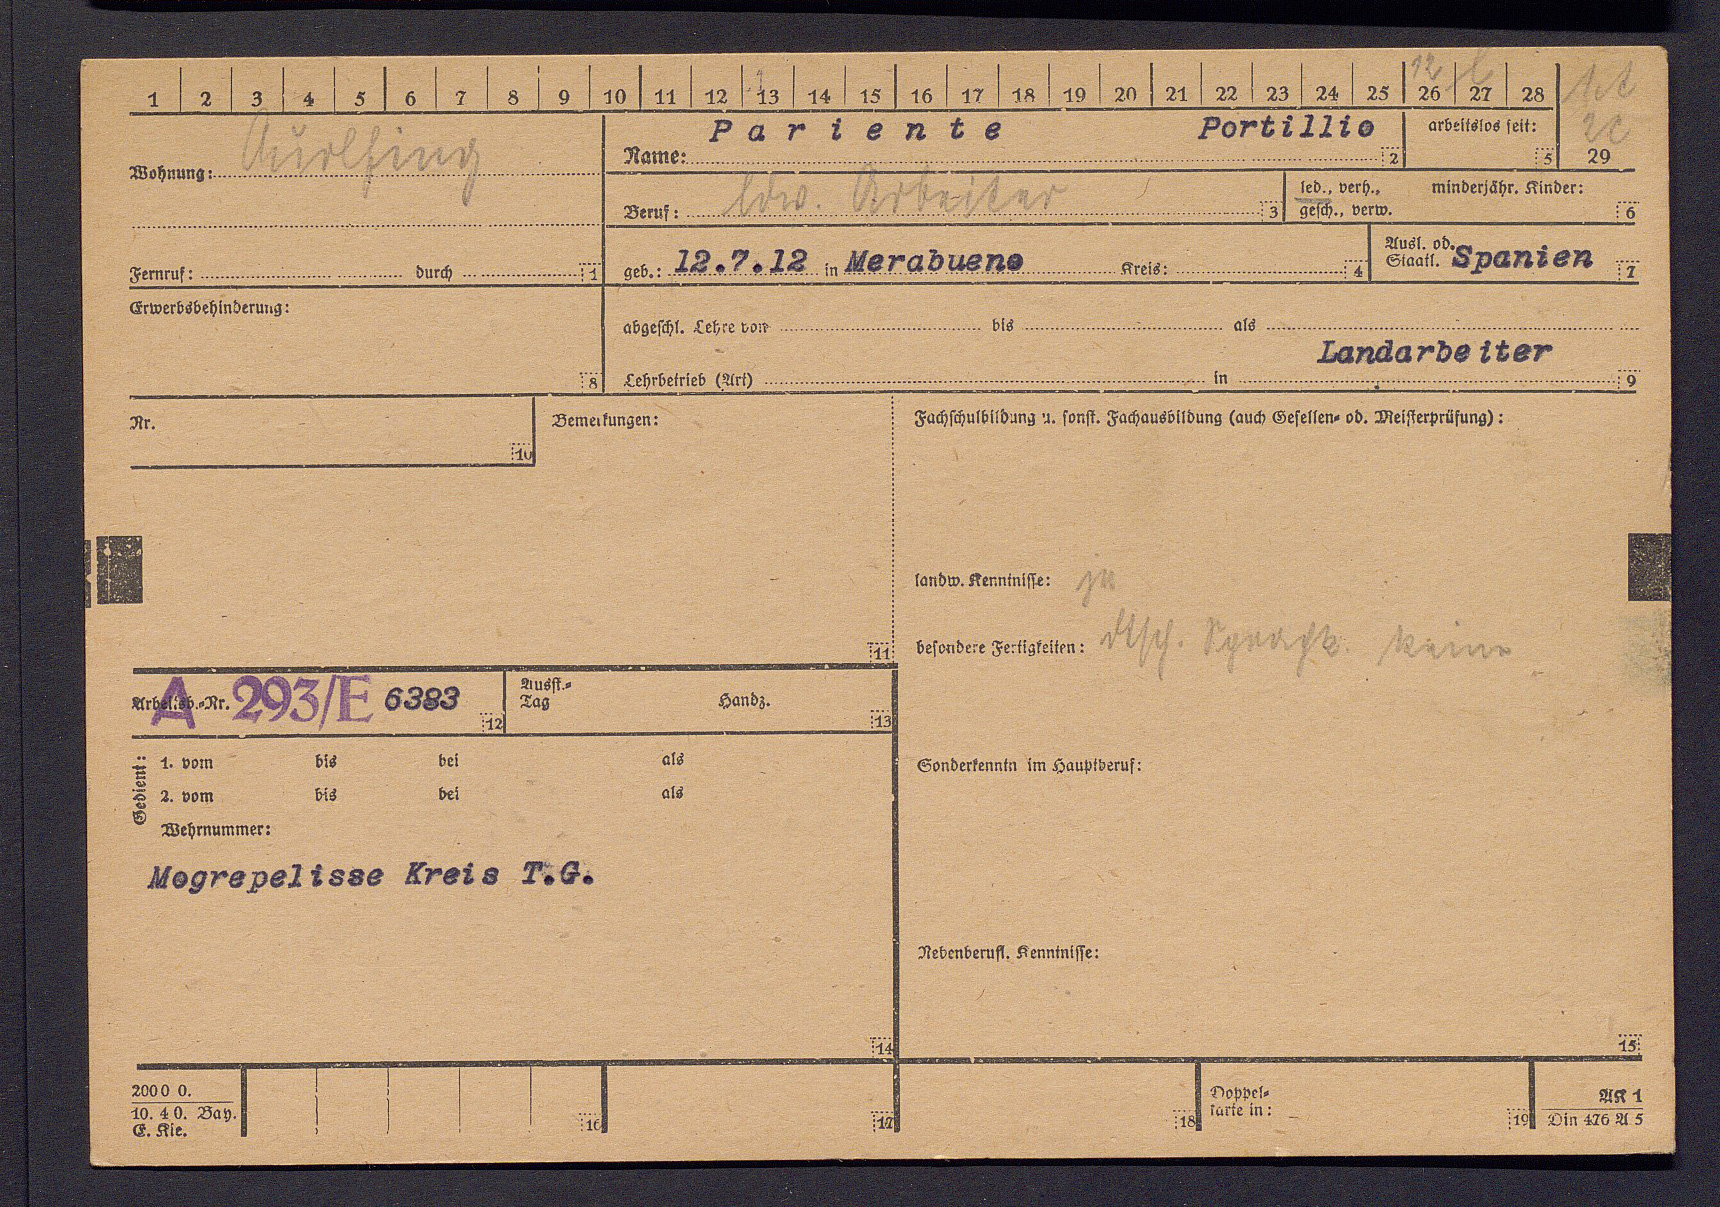 12
1 2 3 4 5 6 7 8 9 10 11 12 13 14 15 16 17 18 19 20 21 22 23 24 25 26 27 28
Pariente Portillio
Name: 2
arbeitslos seit: 5
29
Wohnung:
Beruf: ldw. Arbeiter 3
led., verh., minderjähr. Kinder:
gesch., verw. 6
Fernruf: durch 1
geb.: 12.7.12 in Merabueno Kreis: 4
Ausl. od.
Staatl. Spanien 7
Erwerbsbehinderung:
8
abgeschl. Lehre von bis als
Landarbeiter
Lehrbetrieb (Art) in 9
Nr.
10
Bemerkungen:
11
Fachschulbildung u. sonst. Fachausbildung (auch Gesellen- od. Meisterprüfung):
landw. Kenntnisse: ja
besondere Fertigkeiten: dtsch. Sprachk. keine
Arbeitsb.-Nr. A 293/E 6383 12
Ausst.-
Tag Handz. 13
Gedient:
1. vom bis bei als
2. vom bis bei als
Wehrnummer:
Mogrepelisse Kreis T.G.
14
Sonderkenntn im Hauptberuf:
Nebenberufl. Kenntnisse:
15
2000 0.
10. 40. Bay.
E. Kie.
16
17
18
Doppel-
karte in: 19
AK 1
Din 476 A 5